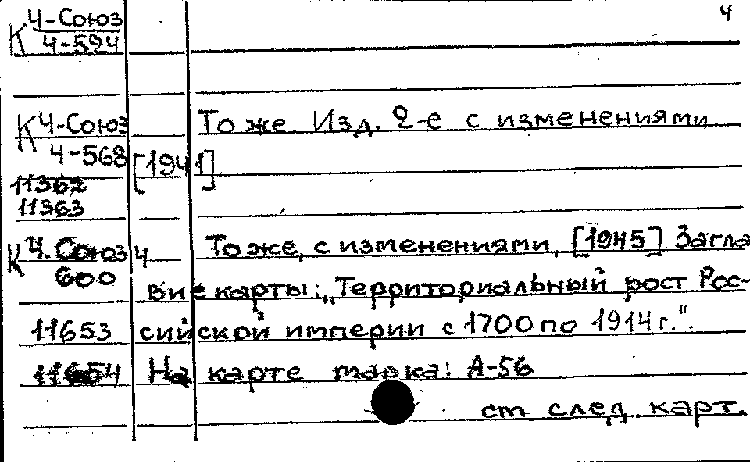 К 4-Союз 4
4-594
К 4-Союз То же Изд. 2-е с изменениями
4-568 [1941]
11362
11363
К 4. Союз 4 То же, с изменениями, [1945] Загла
600 вие карты: „Территориальный рост Рос-
11653 сийской империи с 1700 по 1914 г."
11654 На карте марка: А-56
см след. карт.